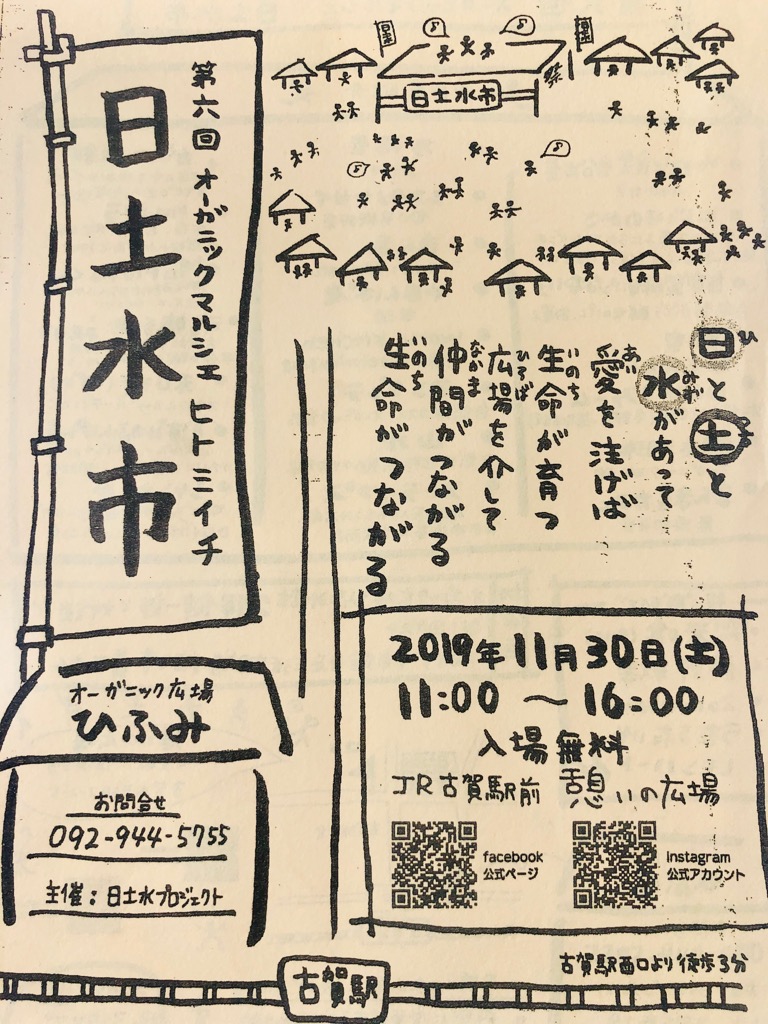 第六回 オーガニックマルシェ ヒトミイチ
日土水市
日水
日水
日土水市
日と土と
ひ
つち
水があって
みず
愛を注げば
あい
生命が育つ
いのち
広場を介して
ひろば
仲間がつながる
なかま
生命がつながる
いのち
2019年11月30日(土)
11:00 〜 16:00
入場無料
JR古賀駅前 憩いの広場
facebook
公式ページ
instagram
公式アカウント
オーガニック広場
ひふみ
お問合せ
092-944-5755
主催:日土水プロジェクト
古賀駅西口より徒歩3分
古賀駅